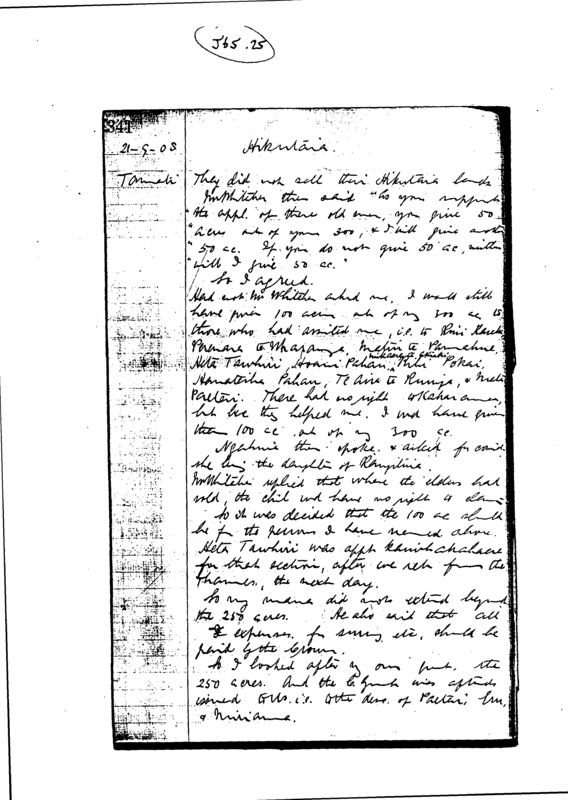 J65.25
341
21-9-08
Hikutaia.
Tamati
They did not sell their Hikutaia lands
Mr Whitcher then said "As you support
"the appl. of these old men, you give 50
"acres out of your 300, & I will give another
"50 ac. If you do not give 50 ac, neither
"will I give 50 ac."
So I agreed.
Had not Mr Whitcher asked me, I would still
have given 100 acres out of my 300 ac to
those who had assisted me, i.e. to
Heta Tawhiri, Pokai,
Te Aira te &
Paetai. These had no right
but bec they helped me. I wd have given
them 100 ac out of my 300 ac.
then spoke & asked for consid.
she being the daughter of
Mr Whitcher replied that where the elders had
sold, the child wd have no right to claim
So it was decided that the 100 ac should
be for the persons I have named above.
Heta Tawhiri was appt Kaiwhakahaere
for that section, after we retd from the
Thames, the next day.
So my mana did not extend beyond
the 250 acres. He also said that all
expenses for survey etc, should be
paid by the Crown.
So I looked after my own part, the
250 acres. And the was aftwds
issued to us. i.e. to the desc. of Paetai,
&